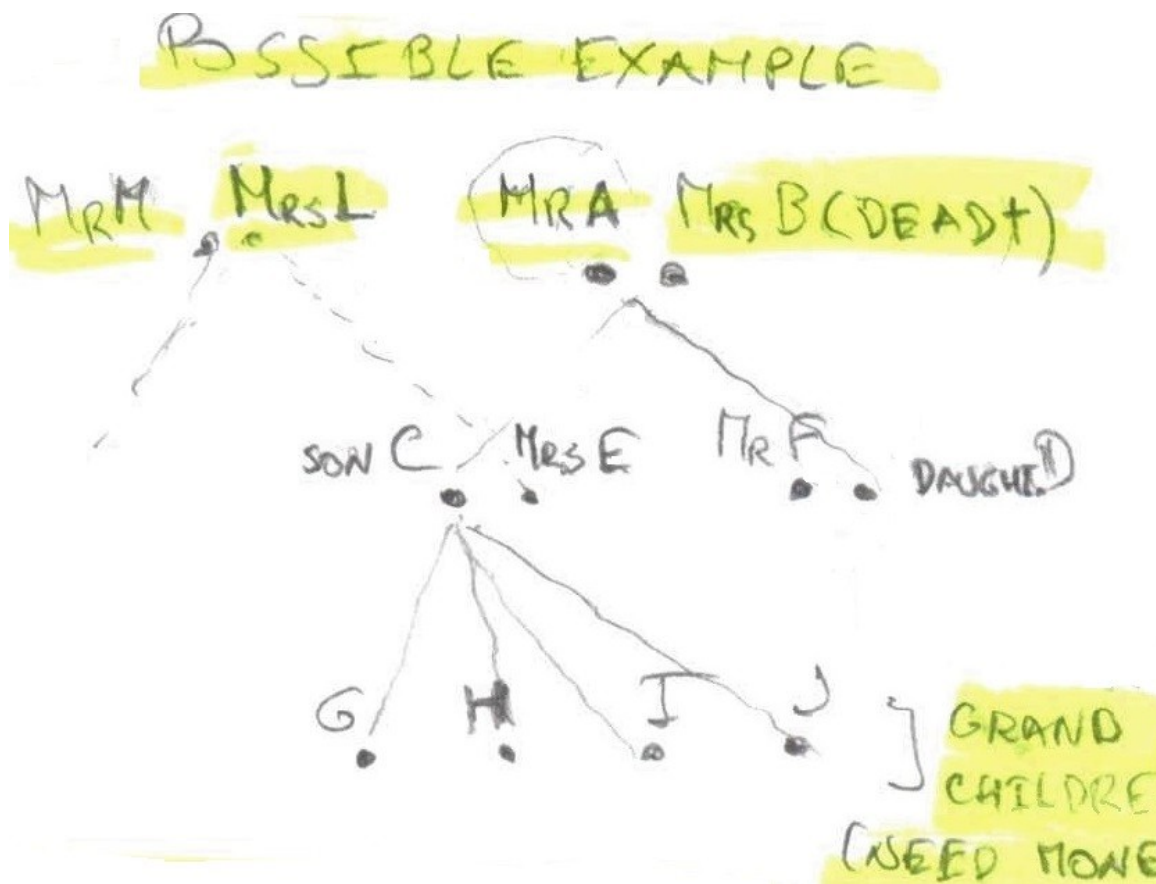 POSSIBLE EXAMPLE
MRM MRSL MRA MRS B (DEAD†)
SON C MRS E MR F DAUGHE.D
G H I J
GRAND
CHILDRE
(NEED MONE